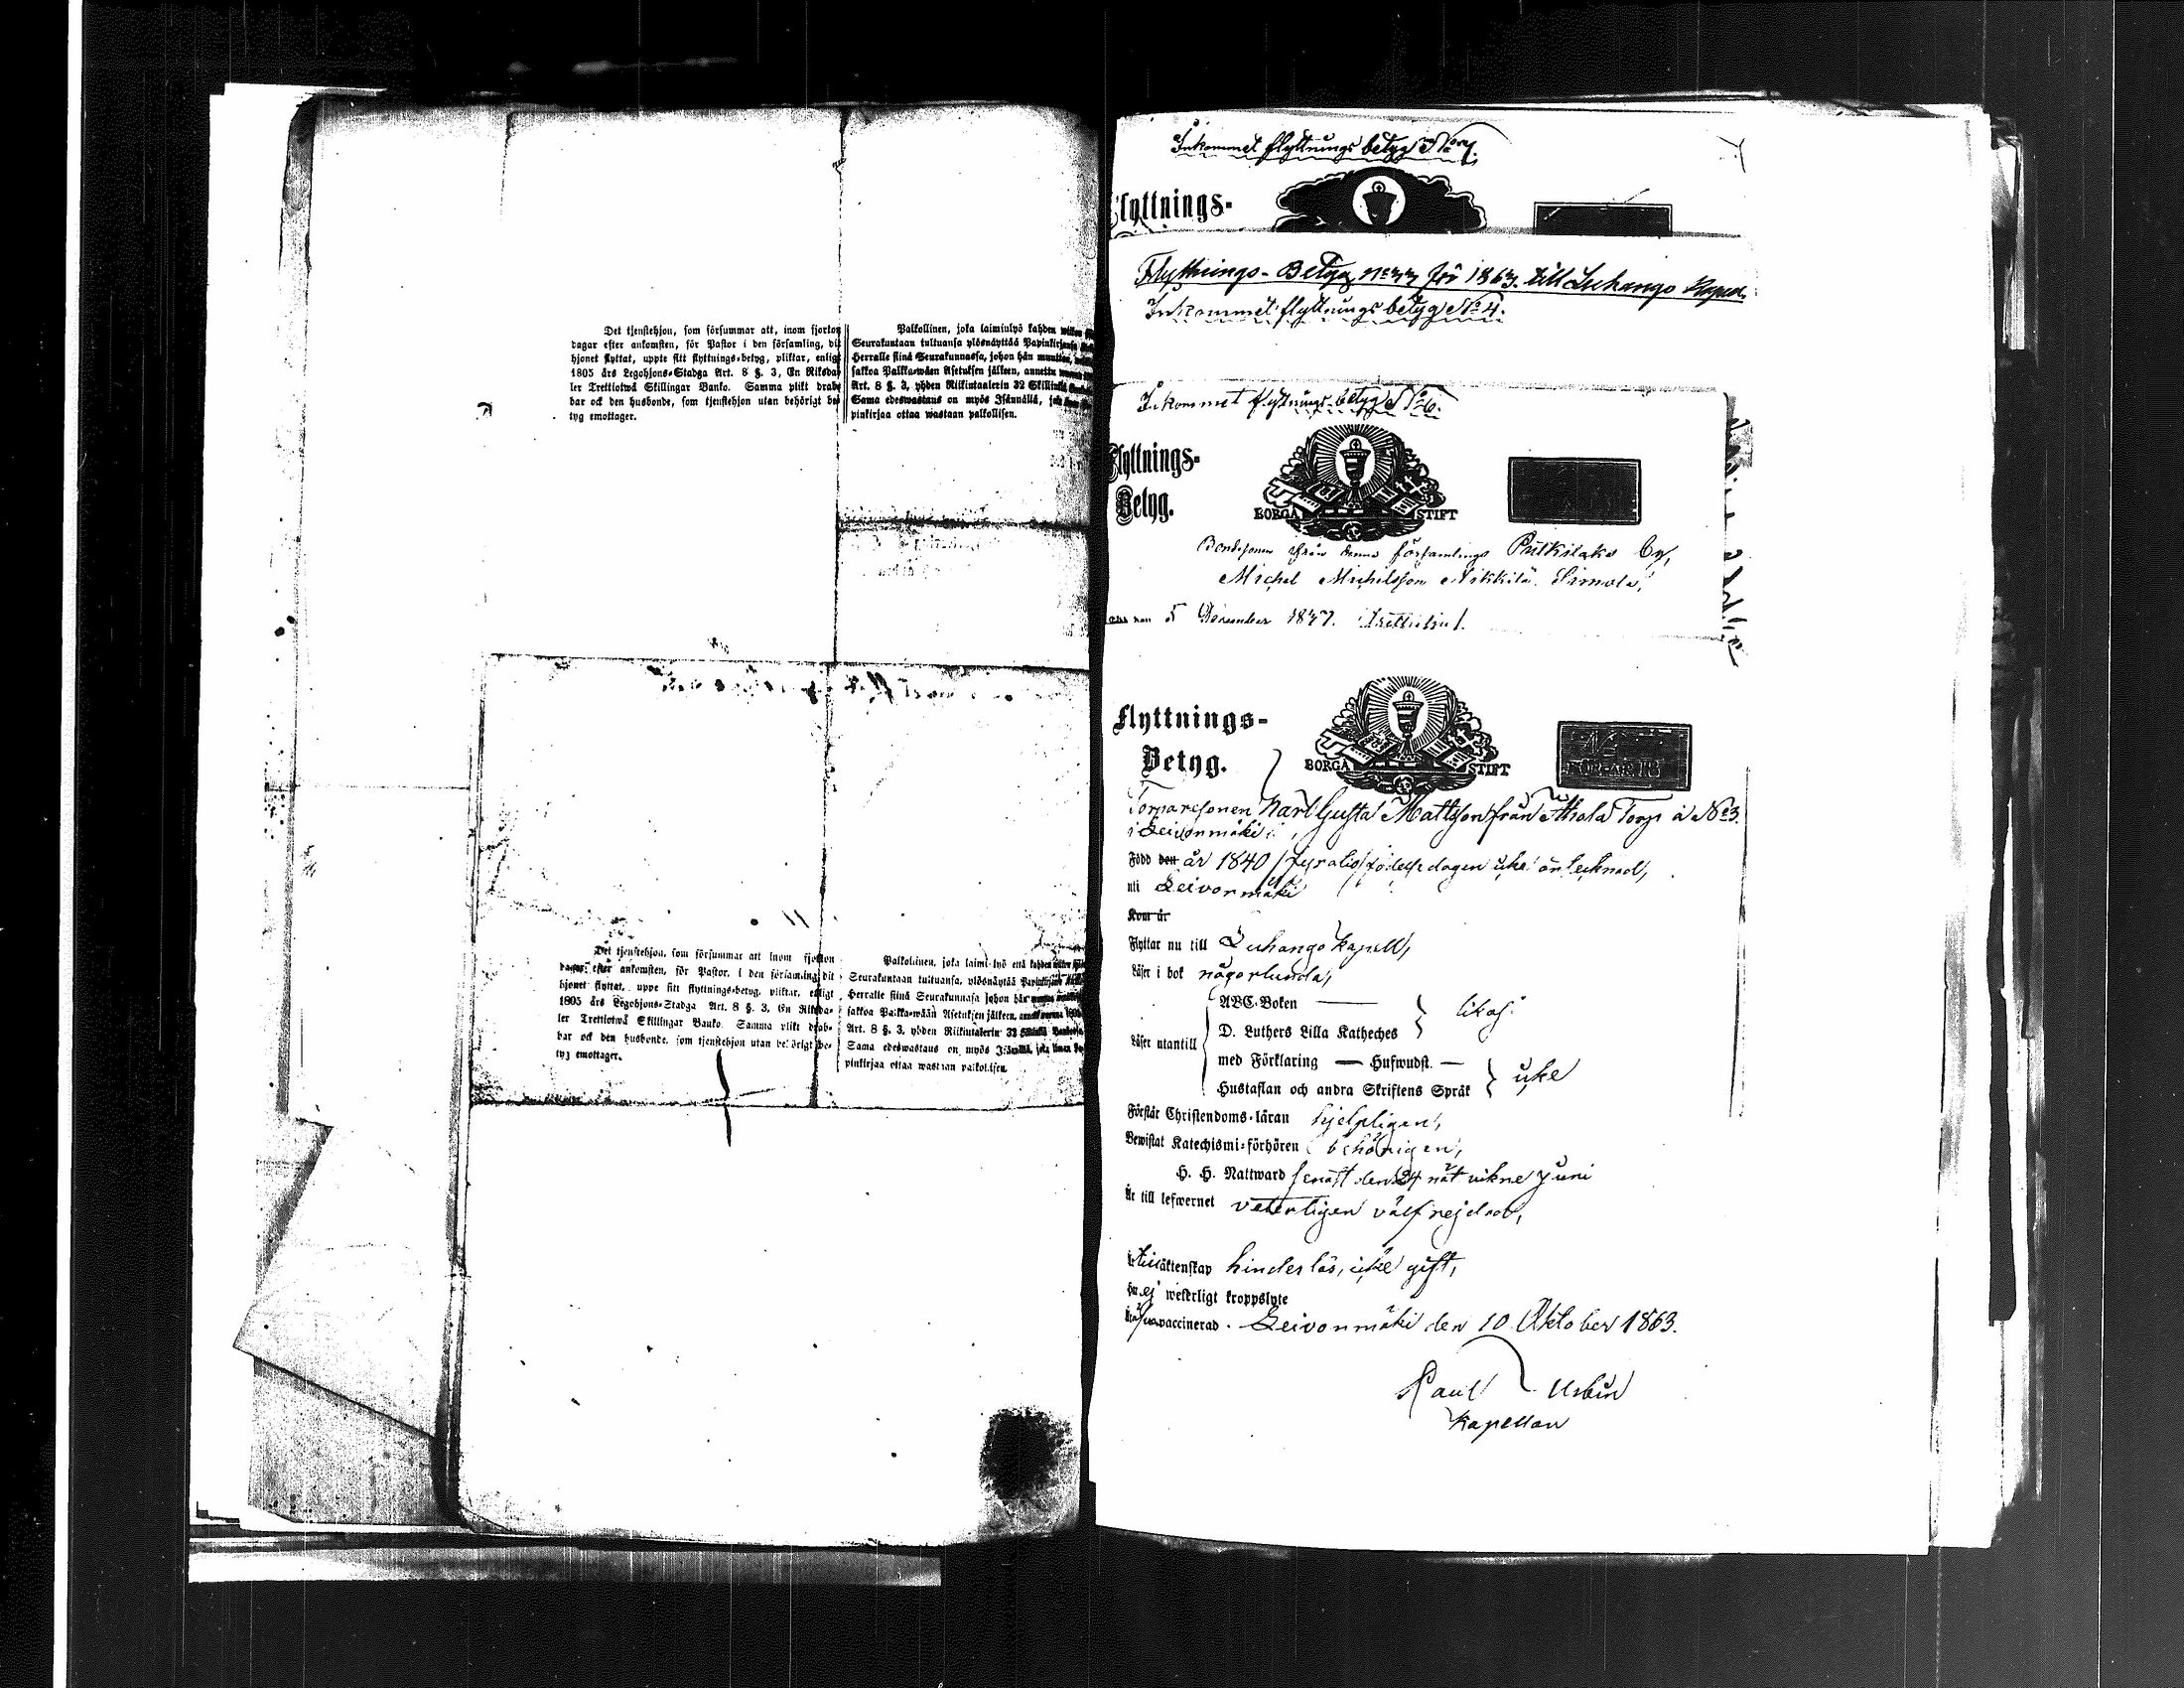 Det tjenstehjon, som försummar att, inom fjorton
dagar efter ankomsten, för Pastor i den församling, dit
hjonet flyttat, uppte sitt flyttnings-betyg, pliktar, enligt
1805 års Legohjons-Stadga Art. 8 §. 3, En Riksda-
ler Trettiotwå Skillingar Banko. Samma plikt drab-
bar ock den husbonde, som tjenstehjon utan behörigt be-
tyg emottager.
Palkollinen, joka laiminlyö kahden
Seurakuntaan tultuansa ylösnäyttää Papinkirjansa
Herralle siinä Seurakunnassa, johon hän
sakkoa Palkka-wäen Asetuksen jälkeen, annettu
Art. 8 §. 3, yhden Riikintaalerin 32 Skillinkiä
Sama edeswastaus on myös Isännällä,
pinkirjaa ottaa wastaan palkollisen.
Det tjenstehjon, som försummar att inom fjorton
dagar efter ankomsten, för Pastor, i den församling dit
hjonet flyttat, uppe sitt flyttnings-betyg, pliktar, enligt
1805 års Legohjons-Stadga Art. 8 §. 3, En Riksda-
ler Trettiotwå Skillingar Banko. Samma plikt drab-
bar ock den husbonde, som tjenstehjon utan behörigt be-
tyg emottager.
Palkollinen, joka laimi-lyö että kahden
Seurakuntaan tultuansa, ylösnäyttää
Herralle siinä Seurakunnasa johon hän
sakkoa Palkka-wään Asetuksen jälkeen,
Art. 8 §. 3, yhden Riikintalerin 32
Sama edeswastaus on myös
pinkirjaa ottaa wastaan palkollisen.
Inkommet flyttnings betyg No 7.
Flyttnings-
Flyttnings-Betyg No for 1863. till Luhango Kapell.
Inkommet flyttnings betyg No 4.
Inkommet flyttnings betyg No 6.
Flyttnings-
Betyg.
BORGÅ STIFT
Bondesonen från denna församlings Putkilaks by,
Michel Michelsson Nikkilä Simola,
5 December 1837.
Flyttnings-
Betyg.
BORGÅ STIFT
Torparesonen Karl Gustaf Mattsson från Ahola Torp å No 3.
i Leivonmäki,
Född den år 1840 /fyratio/ födelsedagen icke antecknad,
uti Leivonmäki
Kom år
Flyttar nu till Luhango kapell,
Läser i bok någorlunda,
ABC-Boken
D. Luthers Lilla Katheches
likas.
Läser utantill
med Förklaring — Hufwudst. —
Hustaflan och andra Skriftens Språk
icke
Förstår Christendoms-läran hjelpligen,
Bewistat Katechismi-förhören behörigen,
H. H. Nattward senast den 24 näst vikne Juni
Är till lefwernet veterligen välfrejdad,
äktenskap hinderlös, icke gift,
ej weterligt kroppslyte
vaccinerad. Leivonmäki den 10 Oktober 1863.
Paul Urbin
Kapellan